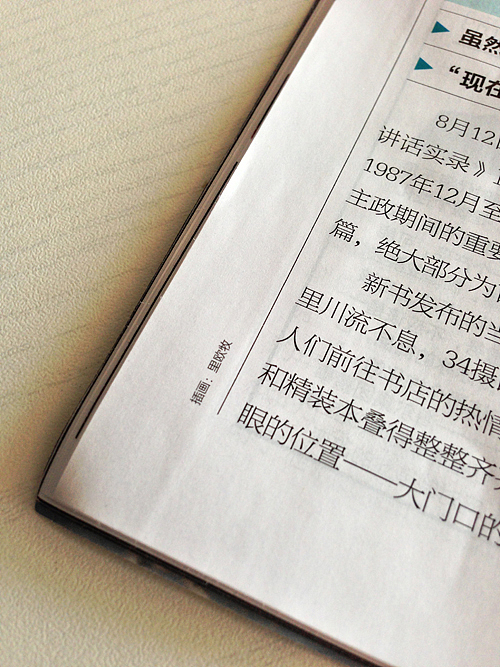 虽然
“现在
8月12日
讲话实录》
1987年12月至
主政期间的重要
篇，绝大部分为
新书发布的当
里川流不息，34摄
人们前往书店的热情
和精装本叠得整整齐齐
眼的位置——大门口的
插画：里欧牧